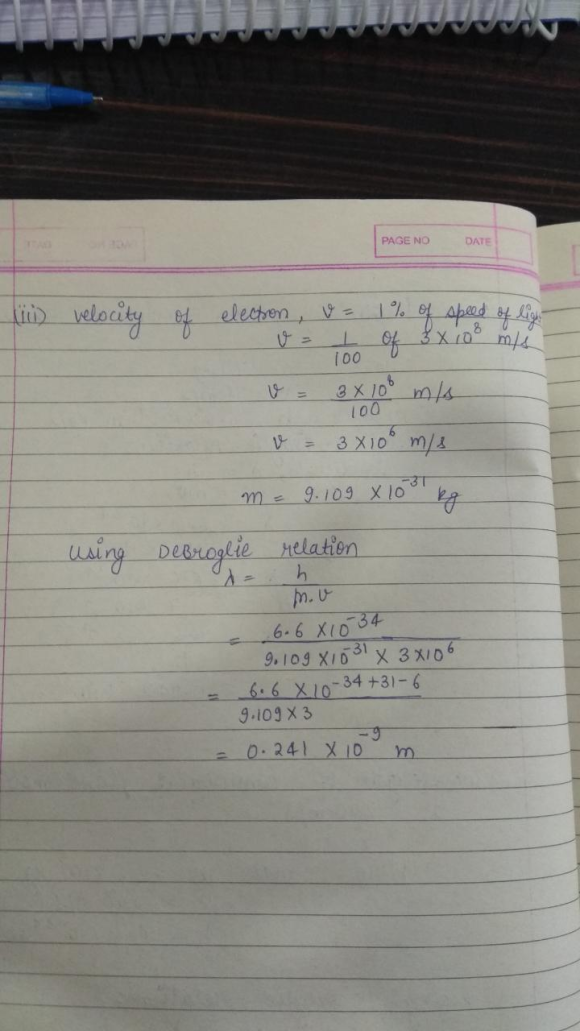 PAGE NO DATE
(iii) velocity of electron, v = 1% of speed of light
v = 1/100 of 3 × 10⁸ m/s
v = 3 × 10⁸/100 m/s
v = 3 × 10⁶ m/s
m = 9.109 × 10⁻³¹ kg
Using DeBroglie relation
λ = h/m.v
= 6.6 × 10⁻³⁴/9.109 × 10⁻³¹ × 3 × 10⁶
= 6.6 × 10⁻³⁴⁺³¹⁻⁶/9.109 × 3
= 0.241 × 10⁻⁹ m